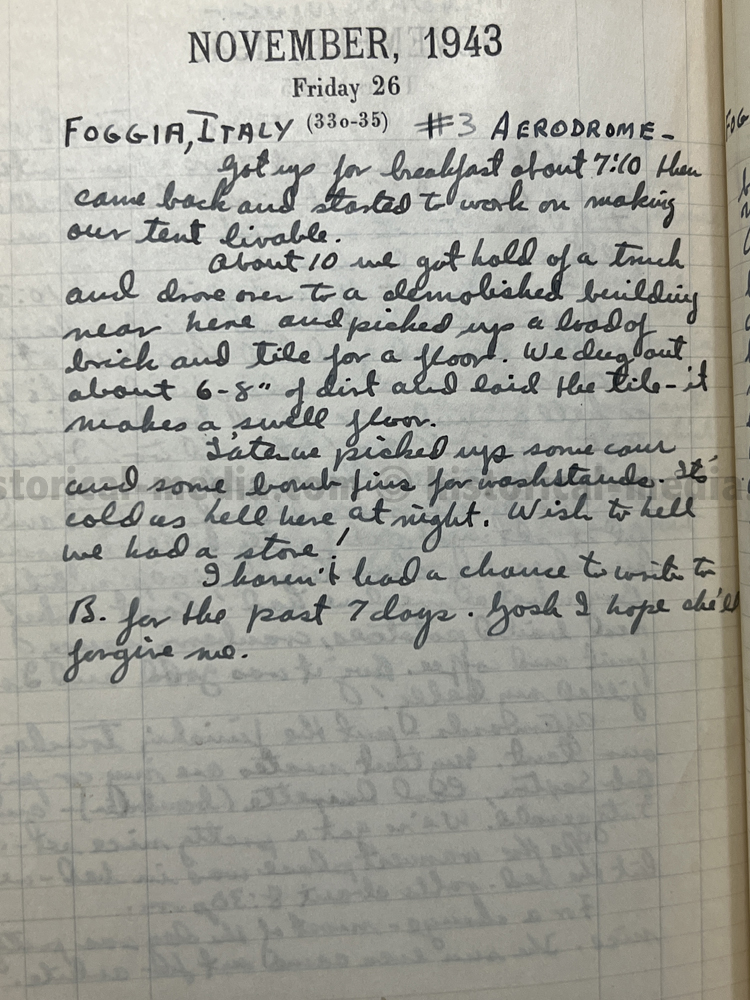 NOVEMBER, 1943
Friday 26
FOGGIA, ITALY (330-35) #3 AERODROME-
Got up for breakfast about 7:10 then
came back and started to work on making
our tent livable.
About 10 we got hold of a truck
and drove over to a demolished building
near here and picked up a load of
brick and tile for a floor. We dug out
about 6-8" of dirt and laid the tile - it
makes a swell floor.
Later we picked up some
and some bomb fins for washstands. It's
cold as hell here at night. Wish to hell
we had a stove!
I haven't had a chance to write to
B. for the past 7 days. Gosh I hope she'll
forgive me.